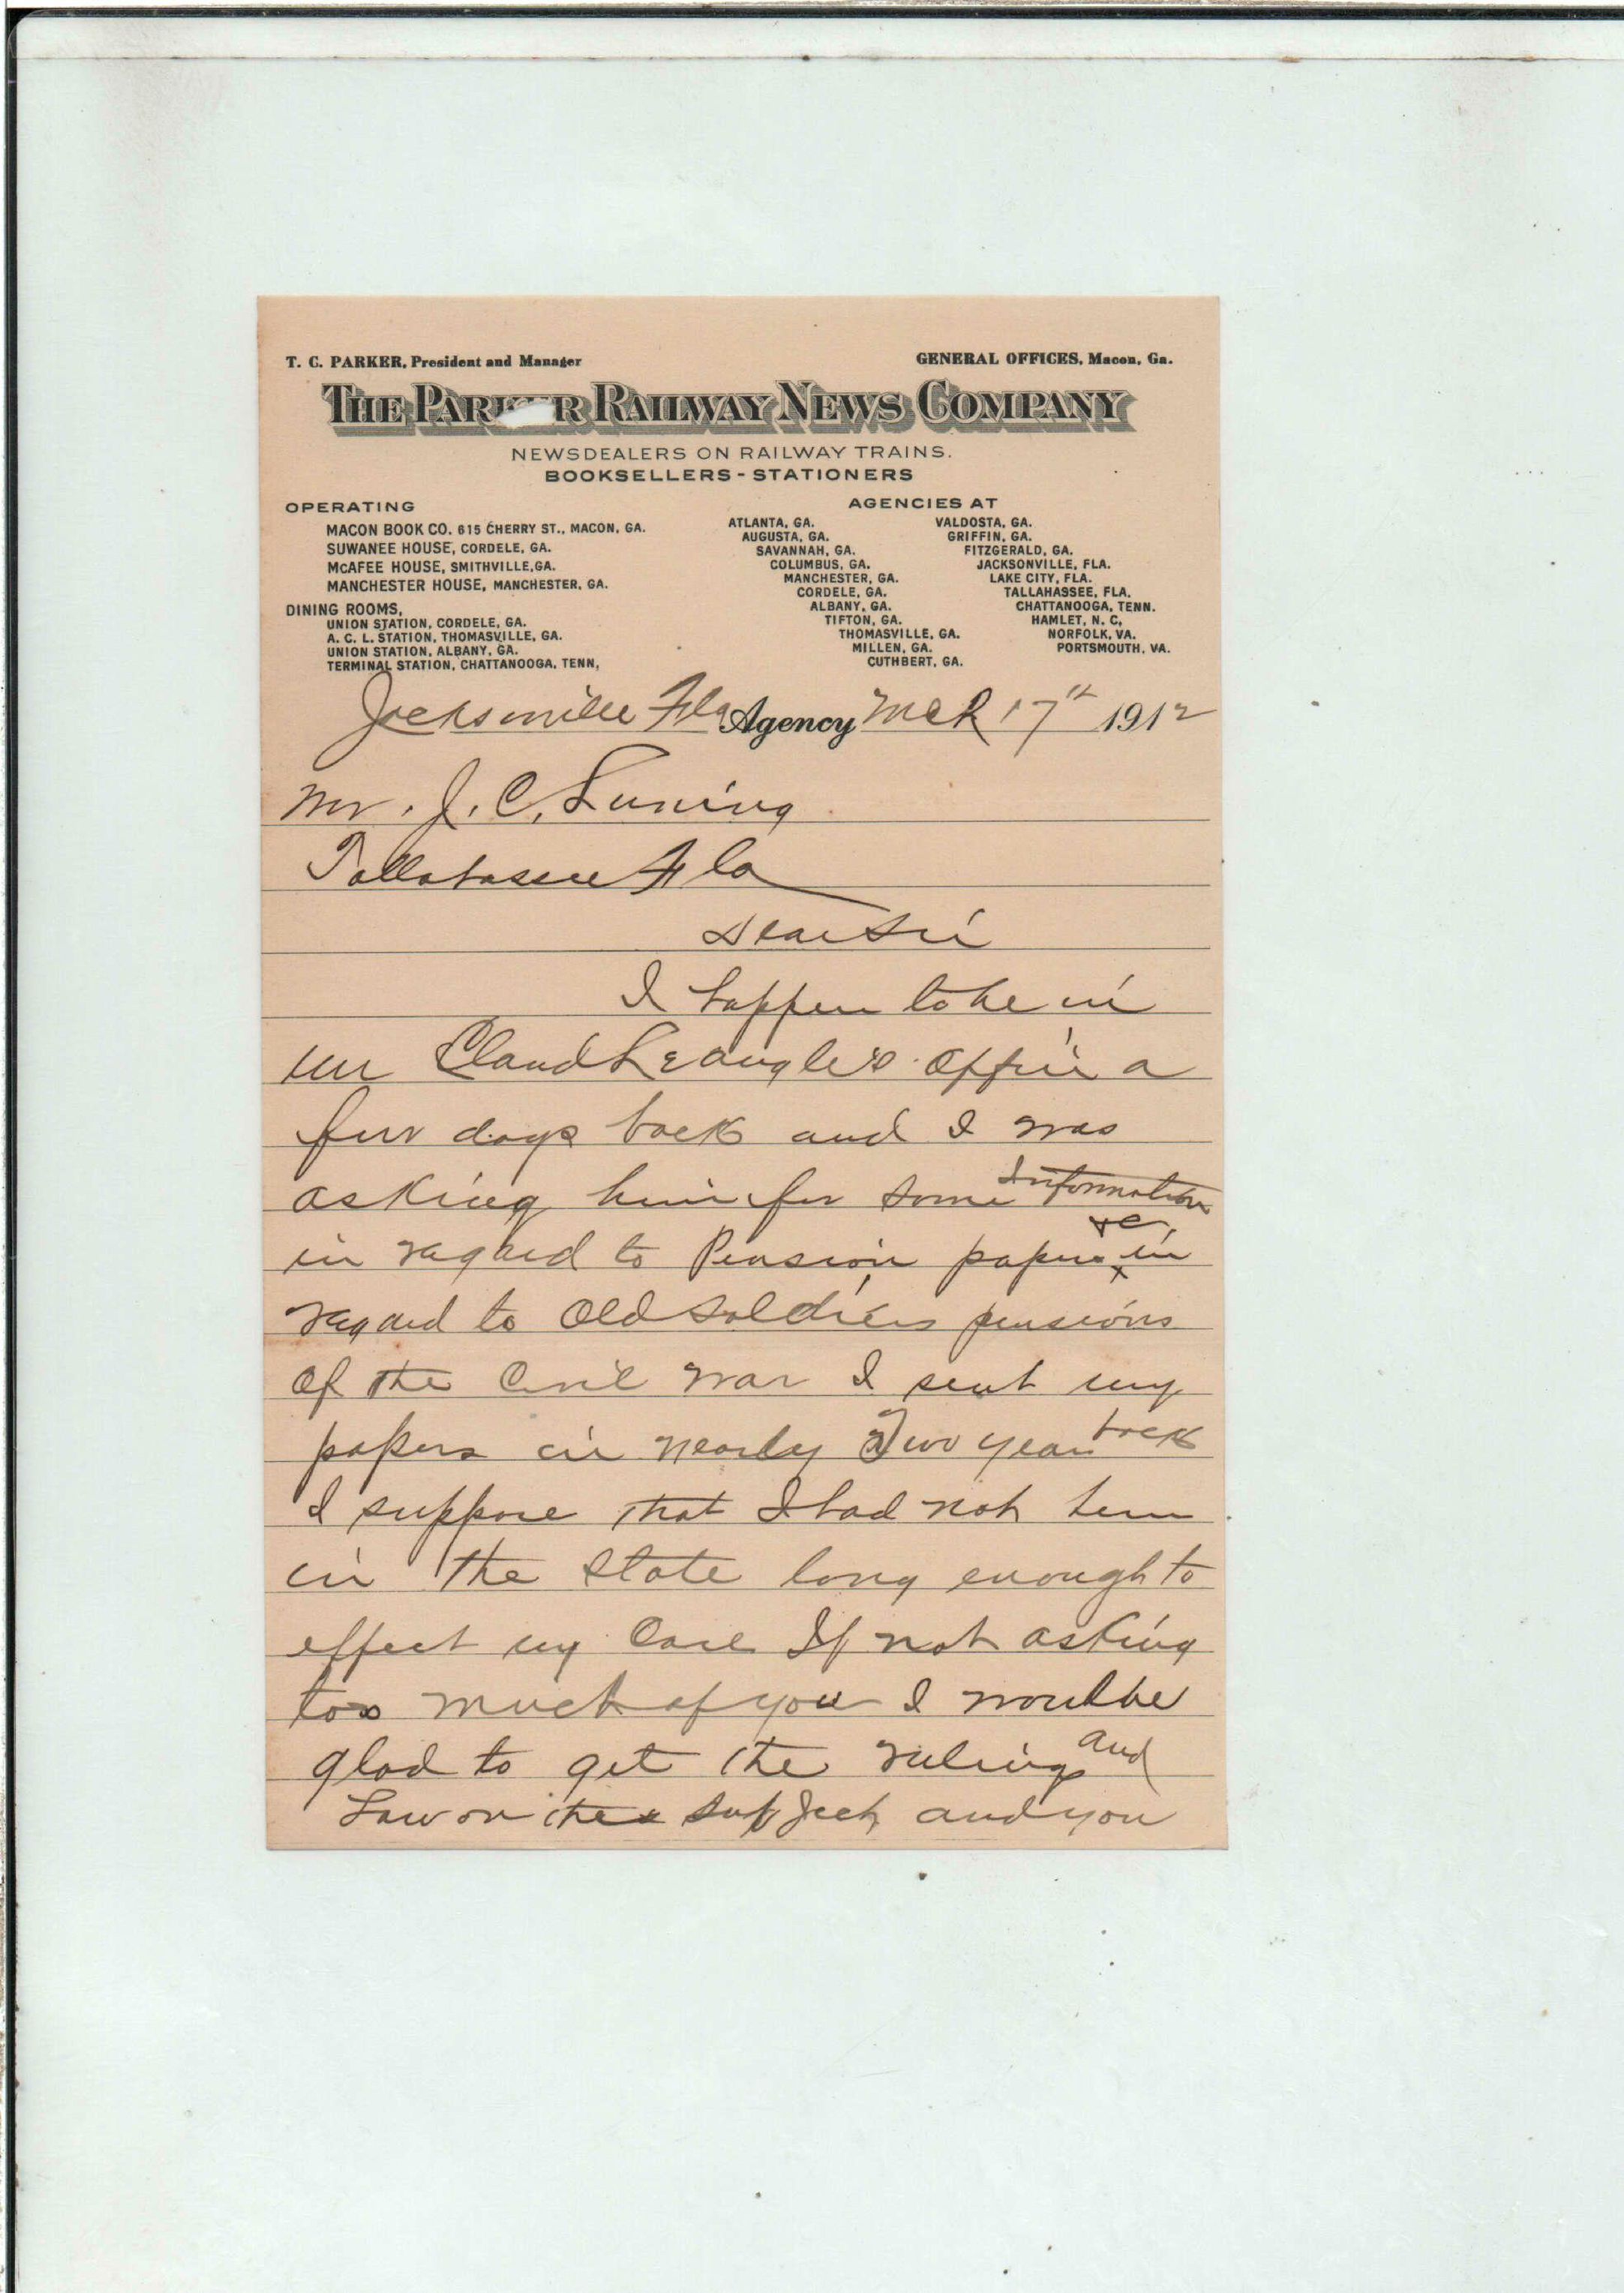 T. C. PARKER, President and Manager
GENERAL OFFICES, Macon, Ga.
THE PARKER RAILWAY NEWS COMPANY
NEWSDEALERS ON RAILWAY TRAINS.
BOOKSELLERS - STATIONERS
OPERATING
MACON BOOK CO. 615 CHERRY ST., MACON, GA.
SUWANEE HOUSE, CORDELE, GA.
McAFEE HOUSE, SMITHVILLE, GA.
MANCHESTER HOUSE, MANCHESTER, GA.
DINING ROOMS,
UNION STATION, CORDELE, GA.
A. C. L. STATION, THOMASVILLE, GA.
UNION STATION, ALBANY, GA.
TERMINAL STATION, CHATTANOOGA, TENN,
AGENCIES AT
ATLANTA, GA.
AUGUSTA, GA.
SAVANNAH, GA.
COLUMBUS, GA.
MANCHESTER, GA.
CORDELE, GA.
ALBANY, GA.
TIFTON, GA.
THOMASVILLE, GA.
MILLEN, GA.
CUTHBERT, GA.
VALDOSTA, GA.
GRIFFIN, GA.
FITZGERALD, GA.
JACKSONVILLE, FLA.
LAKE CITY, FLA.
TALLAHASSEE, FLA.
CHATTANOOGA, TENN.
HAMLET, N. C,
NORFOLK, VA.
PORTSMOUTH, VA.
Jacksonville Fla Agency Mch 17th 1912
Mr. J. C. Luning
Tallahassee Fla
Dear Sir
I happen to be in
Mr Claud Leaugle's office a
few days back and I was
asking him for some Information
in regard to Pension papers in
regard to Old Soldiers pensions
of the Civil War I sent my
papers in nearly Two year back
I suppose that I had not been
in the State long enough to
effect my Case If not asking
too much of you I would be
glad to get the ruling and
Law on the subject and you